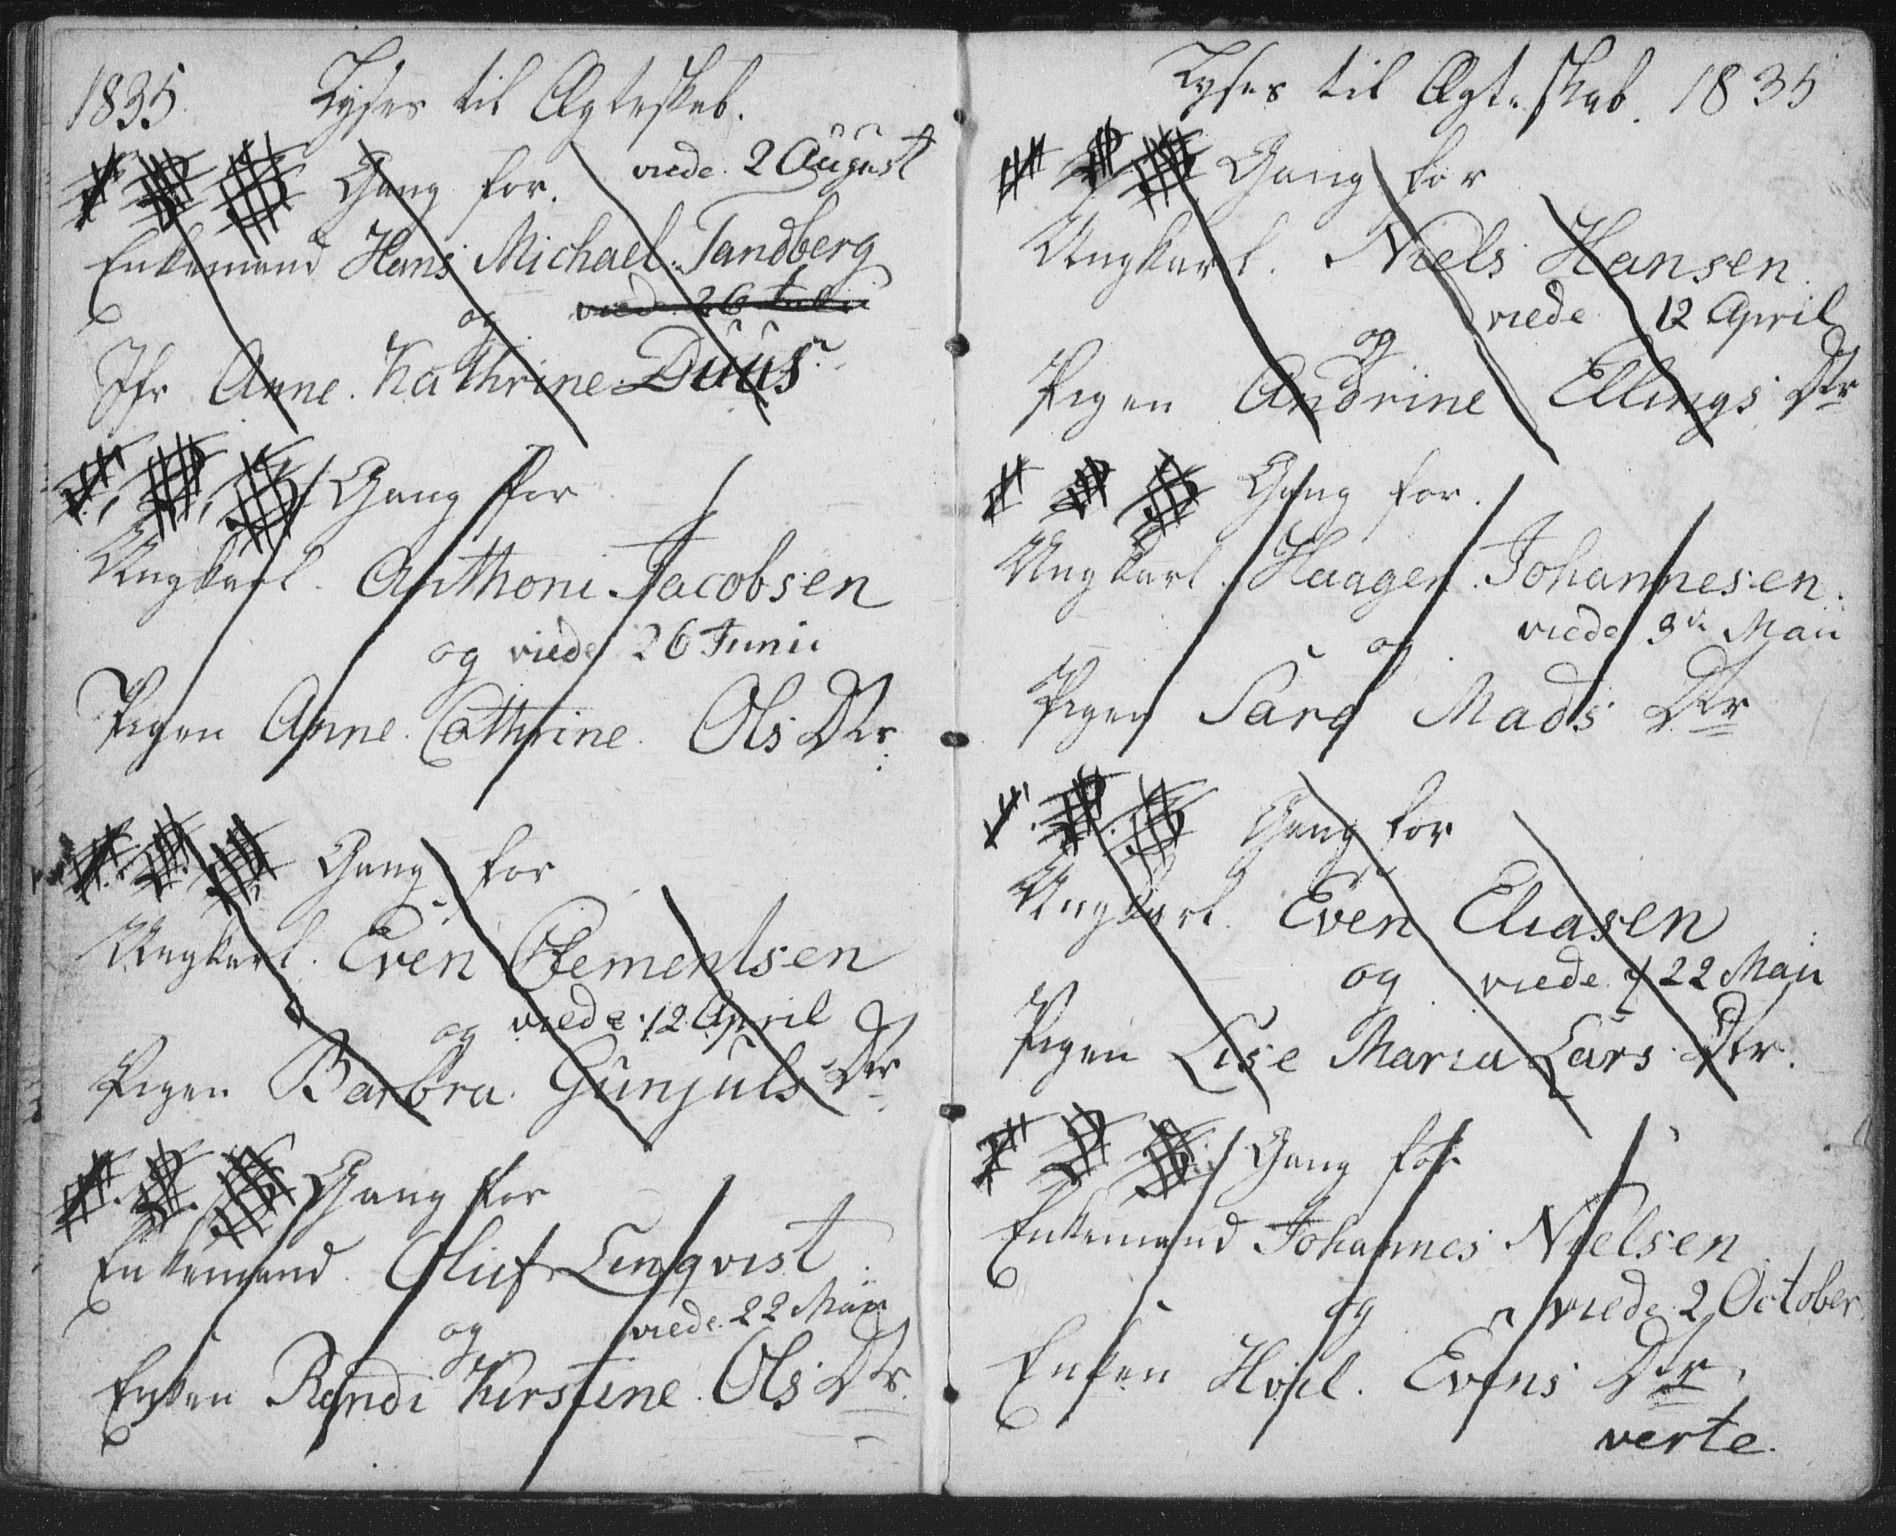 1835. Lyses til Ægteskab.
1. 2. 3 Gang for. viede. 2 August
Enkemand Hans Michael Tandberg
og viede 26 Julii
Jfr Anne. Kathrine Duus
1. 2. 3 Gang for
Ungkarl. Anthoni Jacobsen
og viede 26 Junii
Pigen Anne. Cathrine. Ols Dtr
1. 2. 3 Gang for
Ungkarl. Even Clementsen
og viede. 12. April
Pigen Barbra. Gunjuls Dtr
1. 2. 3 Gang for
Enkemand. Oluf Linqvist
og viede. 22 Maii
Enken Randi Kirstine. Ols Dtr.
Lyses til Ægteskab. 1835
1 2. 3 Gang for
Ungkarl. Niels Hansen.
og viede 12 April
Pigen Andrine Ellings Dtr
1 2 3 Gang for.
Ungkarl. Haagen Johannesen.
og viede 3de Maii
Pigen Sara Mads Dtr
1. 2. 3 Gang for
Ungkarl. Even Eliasen
og viede. 22 Maii
Pigen Lise Maria Lars Dtr.
1 2 3 Gang for
Enkemand Johannes Nielsen
og viede 2 October
Enken Evens Dtr.
verte.